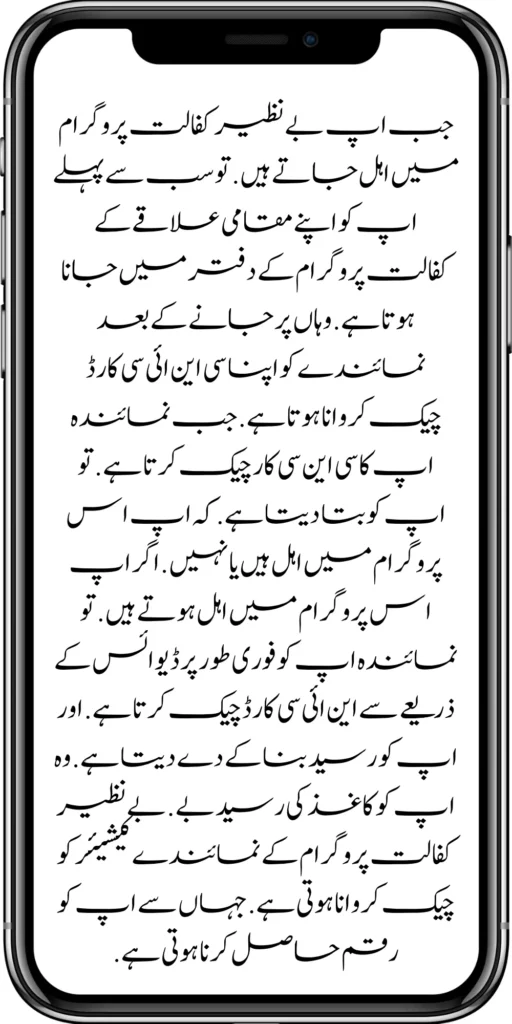 جب اپ بے نظیر کفالت پروگرام
میں اہل جاتے ہیں. تو سب سے پہلے
اپ کو اپنے مقامی علاقے کے
کفالت پروگرام کے دفتر میں جانا
ہوتا ہے. وہاں پر جانے کے بعد
نمائندے کو اپنا سی این ائی سی کارڈ
چیک کروانا ہوتا ہے. جب نمائندہ
اپ کا سی این سی کار چیک کرتا ہے. تو
اپ کو بتا دیتا ہے. کہ اپ اس
پروگرام میں اہل ہیں یا نہیں. اگر اپ
اس پروگرام میں اہل ہوتے ہیں. تو
نمائندہ اپ کو فوری طور پر ڈیوائس کے
ذریعے سے این ائی سی کارڈ چیک کرتا ہے. اور
اپ کو رسید بنا کے دے دیتا ہے. وہ
اپ کو کاغذ کی رسید بے. بے نظیر
کفالت پروگرام کے نمائندے کیشیئر کو
چیک کروانا ہوتی ہے. جہاں سے اپ کو
رقم حاصل کرنا ہوتی ہے.